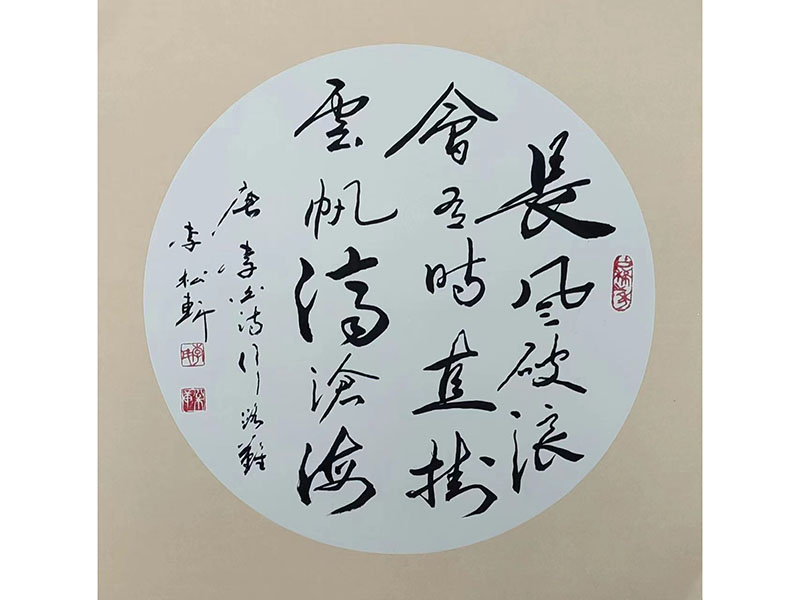 長風破浪
會有時直掛
雲帆濟滄海
唐李白詩行路難
李松軒